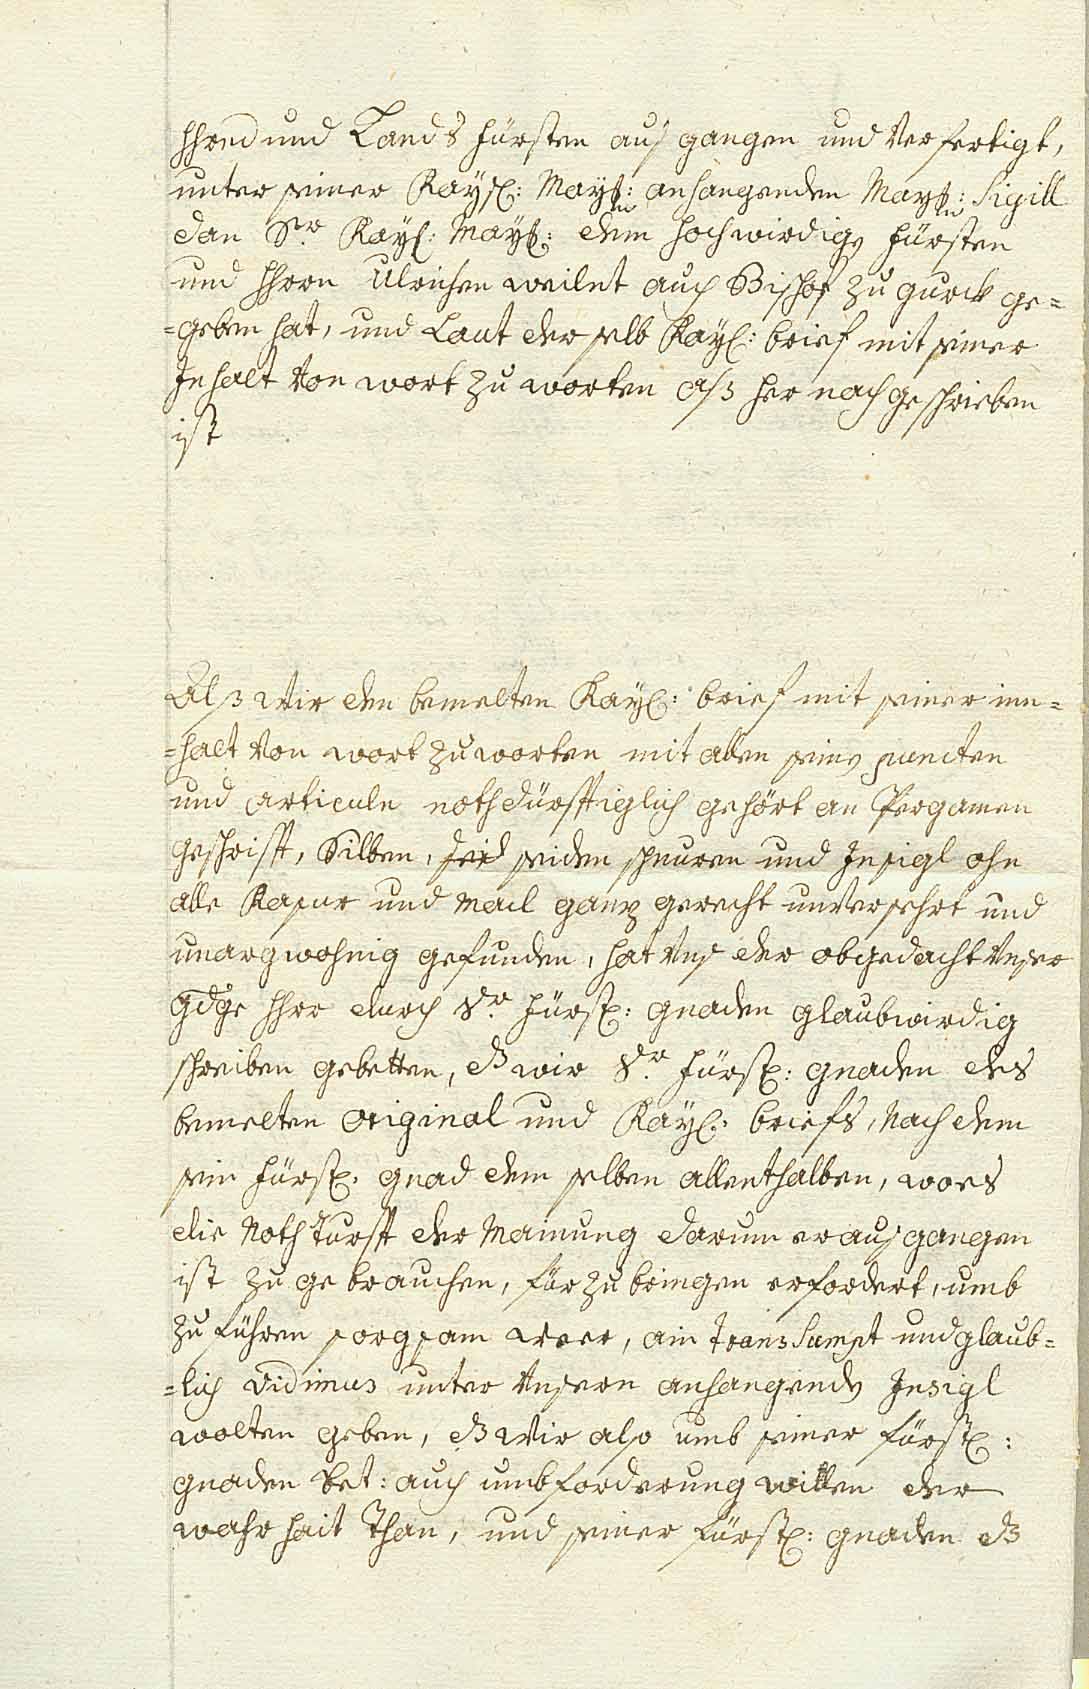 Hhren und Lands Fürsten auß gangen und Verfertigt,
unter seiner Kaÿs: Maÿtt: anhangenden Maÿtt: Sigill
dan Sr Kaÿl: Maÿtt: dem hochwirdigen Fürsten
und Hhrrn Ulrichen weilnt auch Bischof zu gurck ge=
=geben hat, und Laut derselb Kaÿl: brief mit seiner
Inhalt Von wort zu worten alß her nach geschrieben
ist
Alß Wir den bemelten Kaÿl: brief mit seiner inn=
=halt Von wort zu worten mit allen seinen puncten
und articuln nothdürfftiglich gehört an Pergamen
geschrifft, Silben, seiden schnuren und Insigl ohn
alle Rasur und Mail gantz gerecht unversehrt und
unargwohnig gefunden, hat Uns der obgedacht Unser
gdge Hhrr durch Sr Fürstl: gnaden glaubwirdig
schreiben gebetten, dß wir Sr Fürstl: gnaden des
bemelten Original und Kaÿl: briefs, Nach dem
sein Fürstl: gnad dem selben allenthalben, wo es
die Nothturfft der Mainung darum er auß gangen
ist zu gebrauchen, fürzubringen erfordert, umb
zu führen sorgsam wer, ain Transsumpt und glaub=
=lich Vidimus unter Unsern anhangenden Insigl
wolten geben, dß Wir also umb seiner Fürstl:
gnaden bet: auch umb forderung willen der
wahrhait Than, und seiner Fürstl: gnaden dß